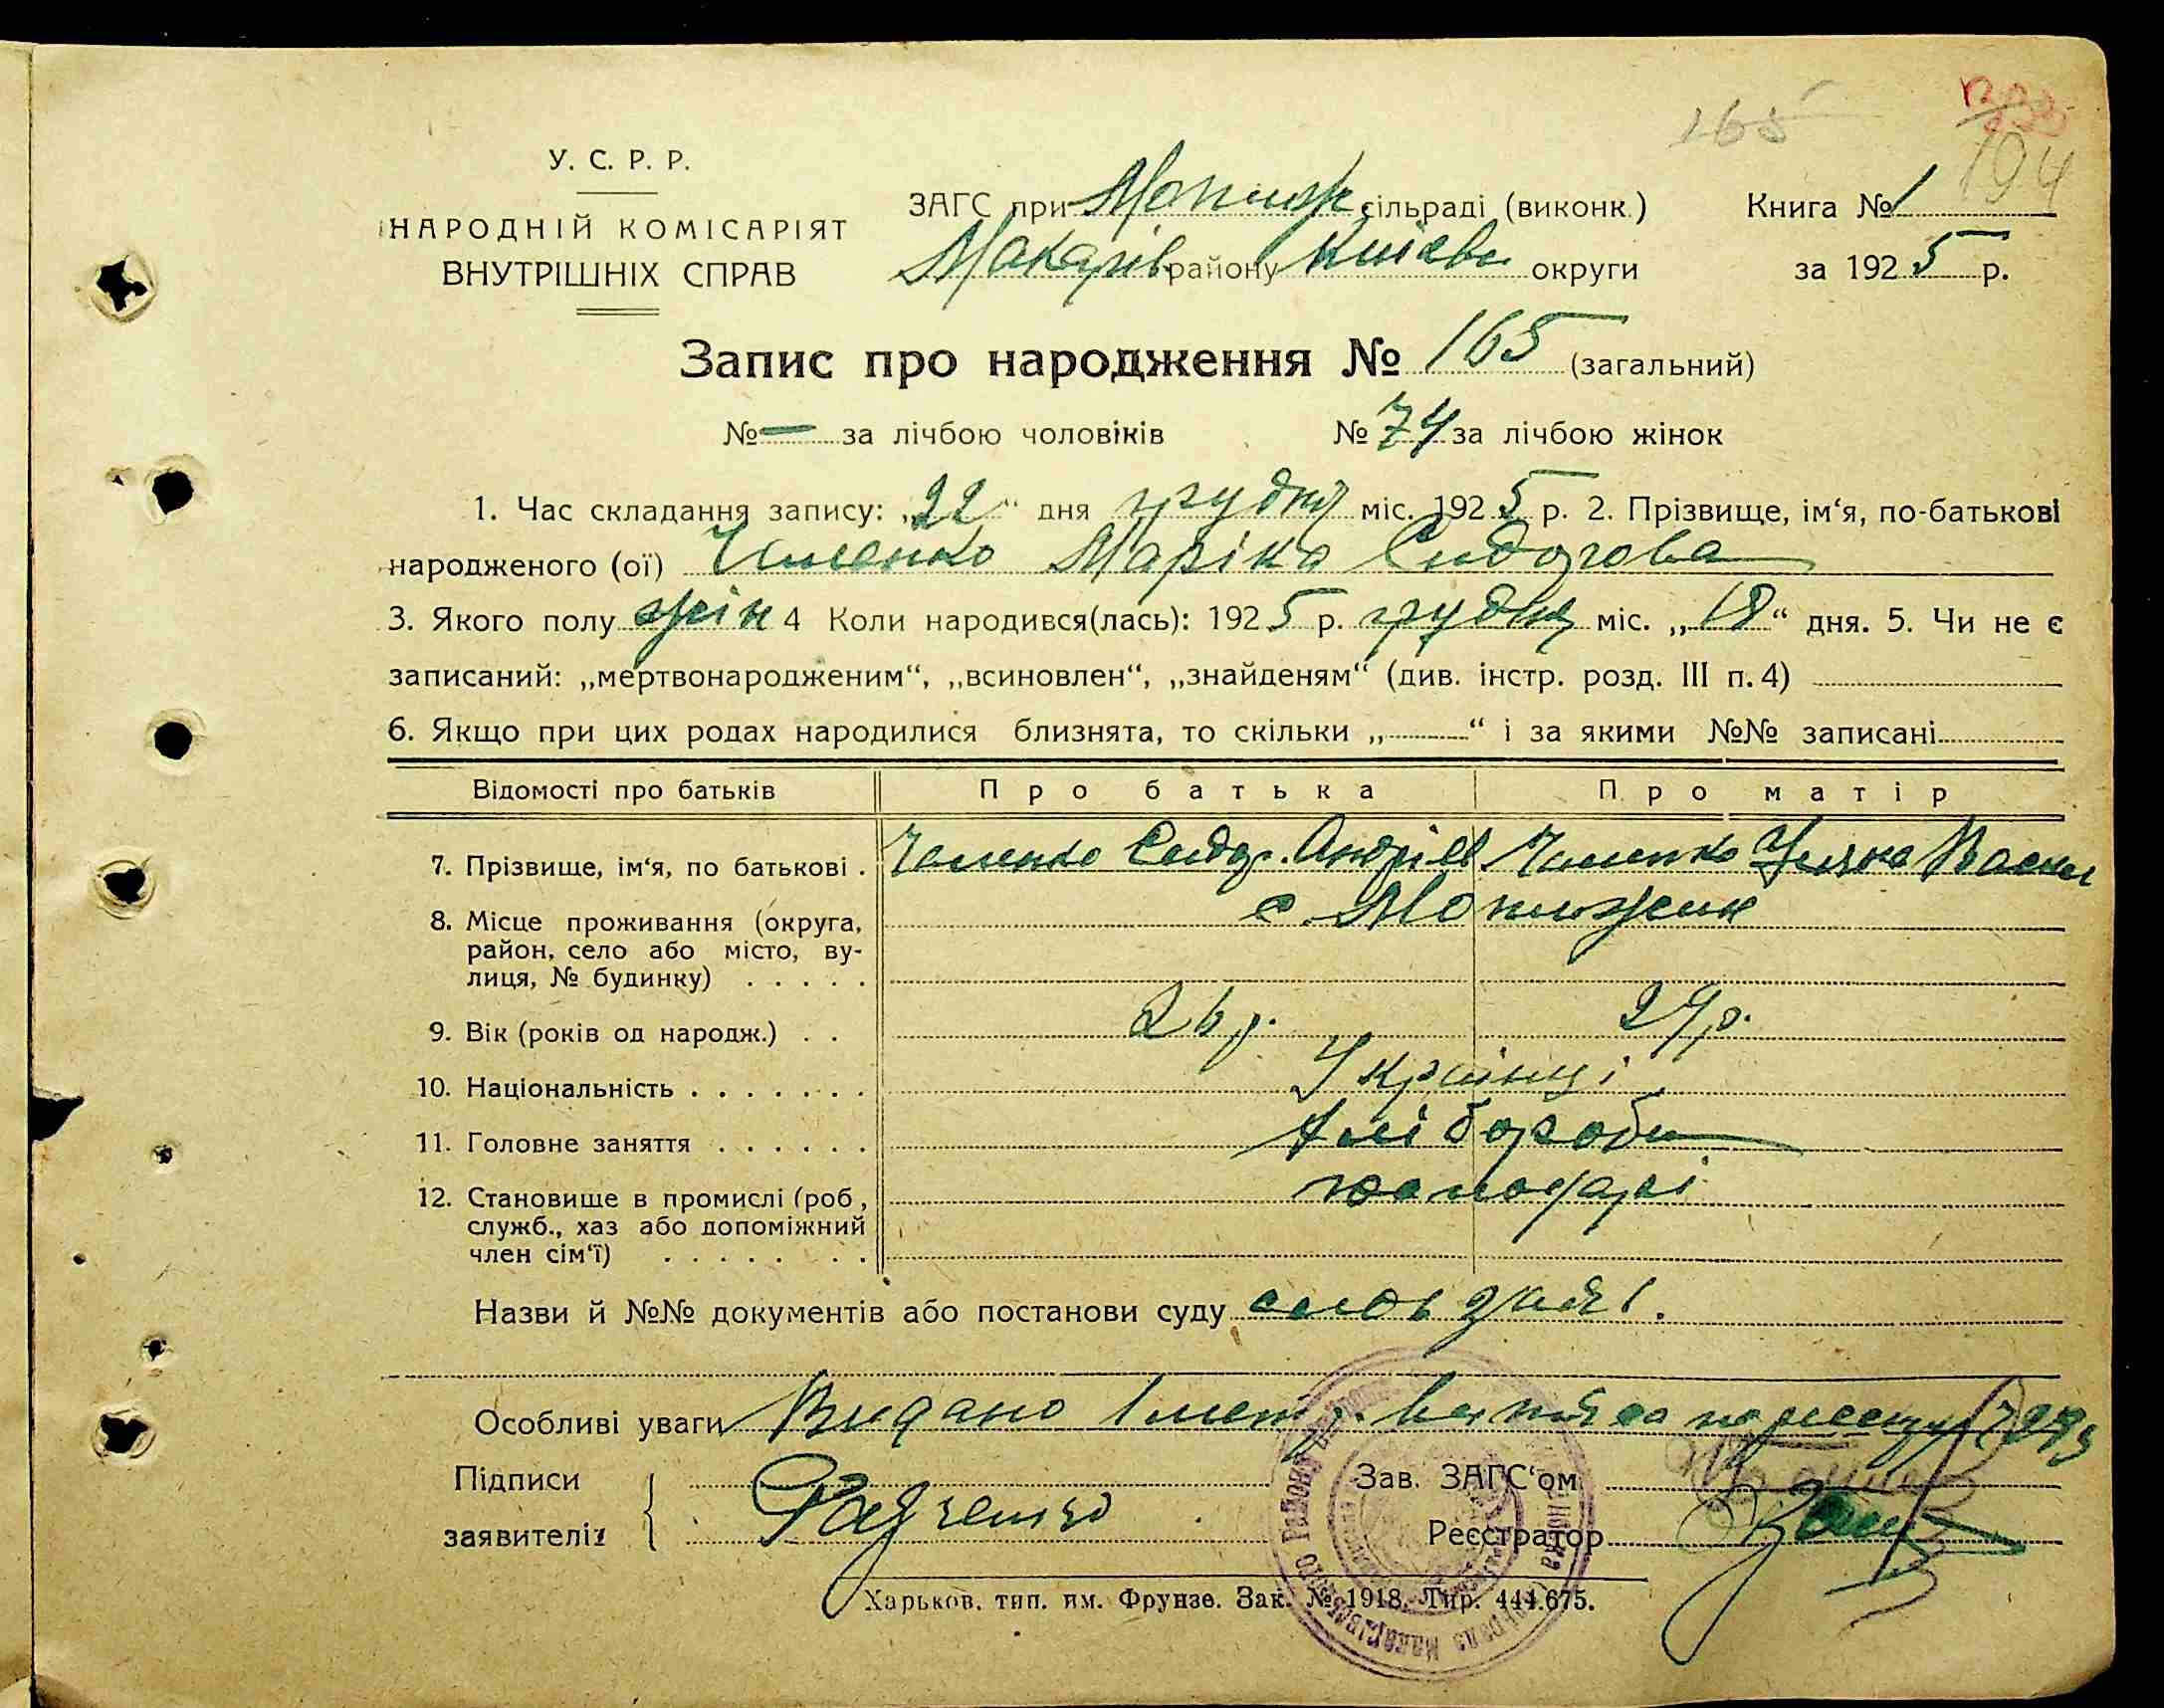 165
194
У. С. Р. Р.
НАРОДНІЙ КОМІСАРІЯТ
ВНУТРІШНІХ СПРАВ
ЗАГС при Мотиж сільраді (виконк.)
Макарів району Київськ округи
Книга № 1
за 1925 р.
Запис про народження № 165 (загальний)
№ — за лічбою чоловіків № 74 за лічбою жінок
1. Час складання запису: „22“ дня грудня міс. 1925 р. 2. Прізвище, ім‘я, по-батькові
народженого (ої) Маріка Сидорова
3. Якого полу жін 4 Коли народився(лась): 1925 р. грудня міс. „18“ дня. 5. Чи не є
записаний: „мертвонародженим“, „всиновлен“, „знайденям“ (див. інстр. розд. III п. 4)
6. Якщо при цих родах народилися близнята, то скільки „ “ і за якими №№ записані
Відомості про батьків Про батька Про матір
7. Прізвище, ім‘я, по батькові . Сидор. Андріев Уляна Васил
8. Місце проживання (округа, с. Мотижин
район, село або місто, ву-
лиця, № будинку) . . . . .
9. Вік (років од народж.) . . 26 р. 24 р.
10. Національність . . . . . . . Українці
11. Головне заняття . . . . . . Хлібороби
12. Становище в промислі (роб., господарі
служб., хаз або допоміжний
член сім‘ї) . . . . . . .
Назви й №№ документів або постанови суду
Особливі уваги Видано 1
Підписи
заявителів
Зав. ЗАГС‘ом
Реєстратор
Харьков, тип. им. Фрунзе. Зак. № 1918. Тир. 444.675.